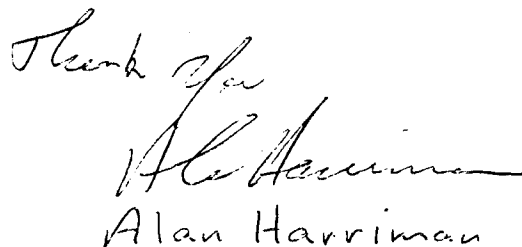 Thank you
Al Harriman
Alan Harriman